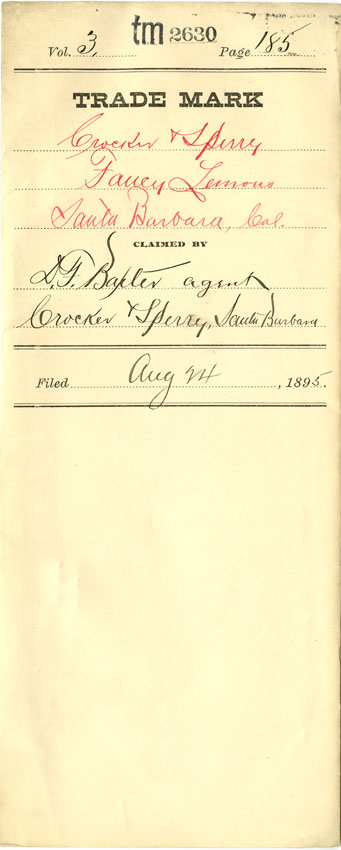 tm 2630
Vol. 3, Page 185
TRADE MARK
Crocker & Sperry
Fancy Lemons
Santa Barbara, Cal.
CLAIMED BY
D. F. Baxter agent
Crocker & Sperry, Santa Barbara
Filed Aug 24, 1895.